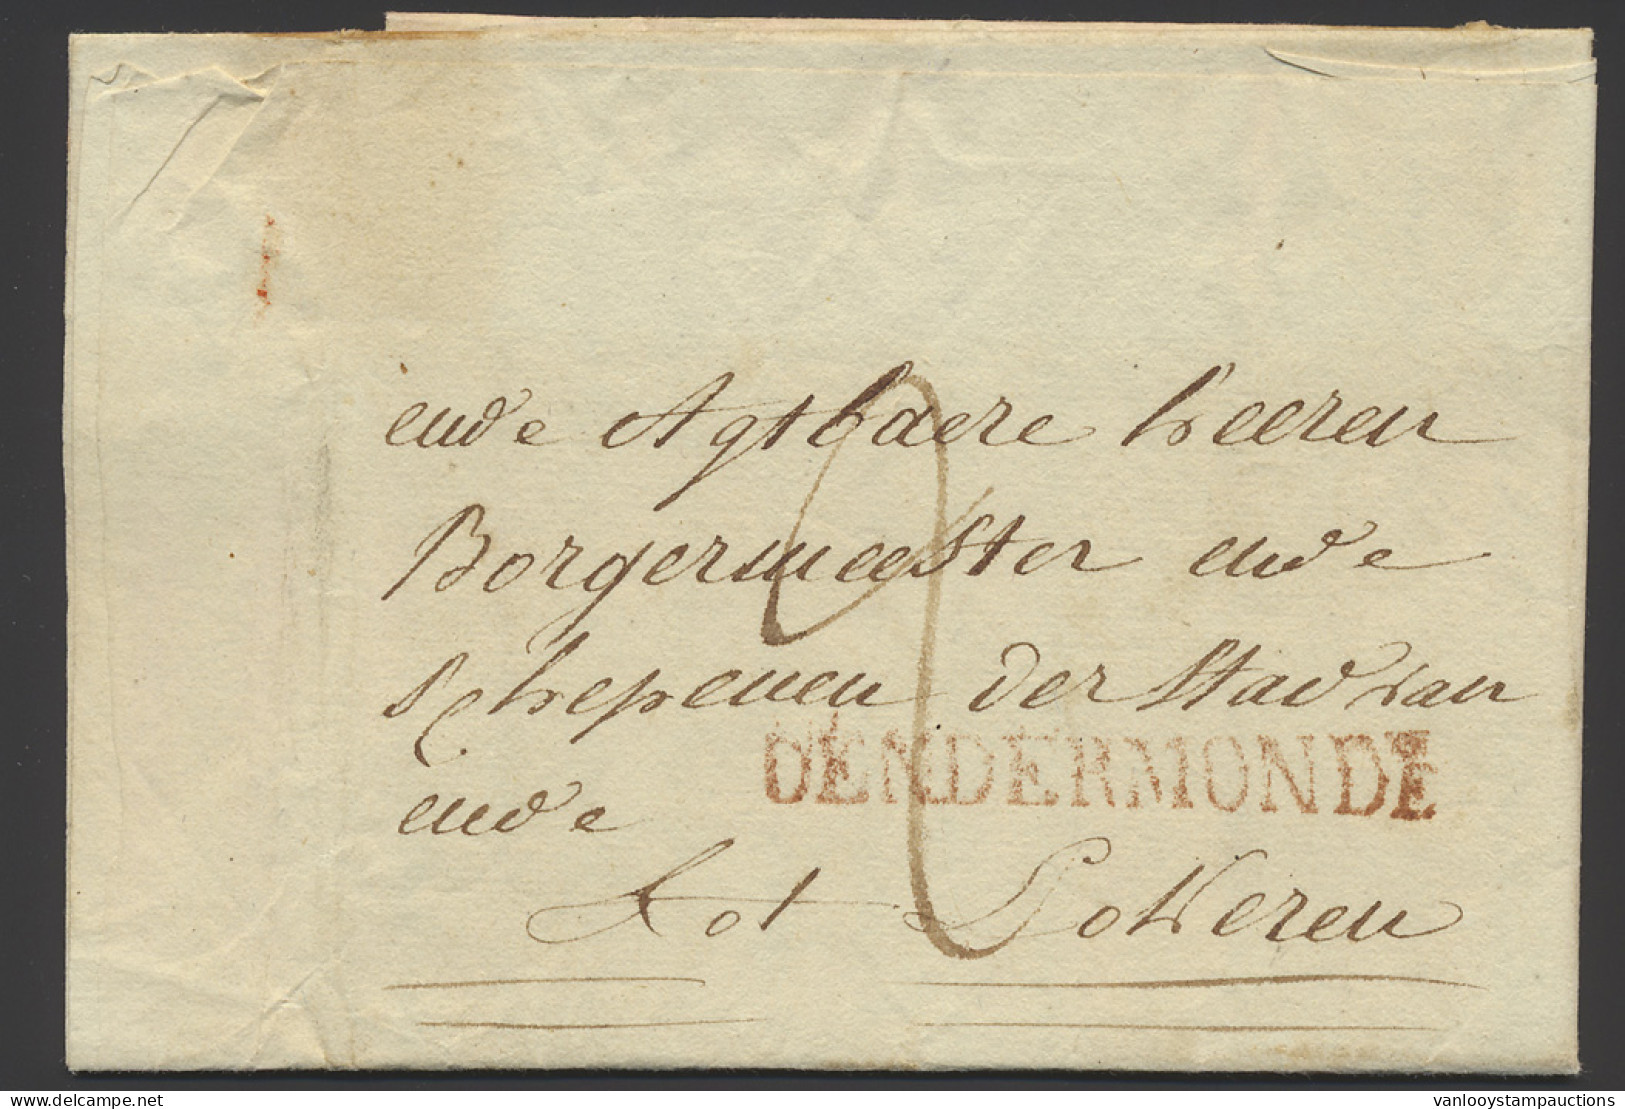 ende Agtbaere heeren
Borgermeester ende
schepenen der Stad van
DENDERMONDE
ende
tot Lokeren
2
delcampe.net
vanlooystampauctions